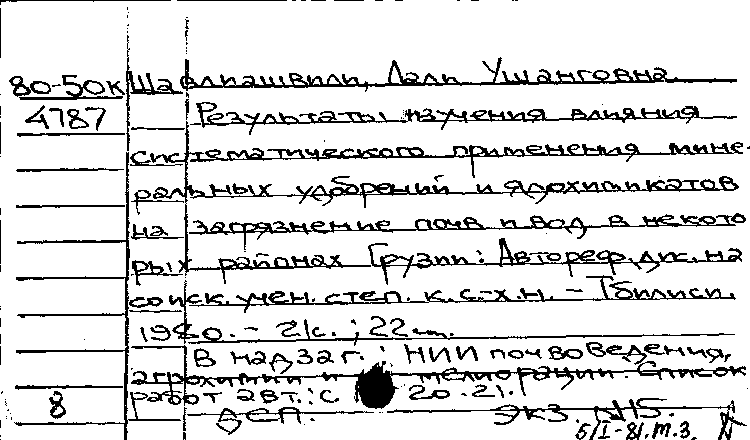 80-50к Шавлиашвили, Лали Ушанговна.
4787 Результаты изучения влияния
систематического применения мине-
ральных удобрений и ядохимикатов
на загрязнение почв и вод в некото
рых районах Грузии: Автореф. дис. на
соиск. учен. степ. к. с-х. н. - Тбилиси,
1980. - 21с.; 22см.
В надзаг.: НИИ почвоведения,
агрохимии и мелиорации. Список
8 работ авт.: с 20-21.
ДСП. ЭКЗ №45.
5/I-81. т.3.